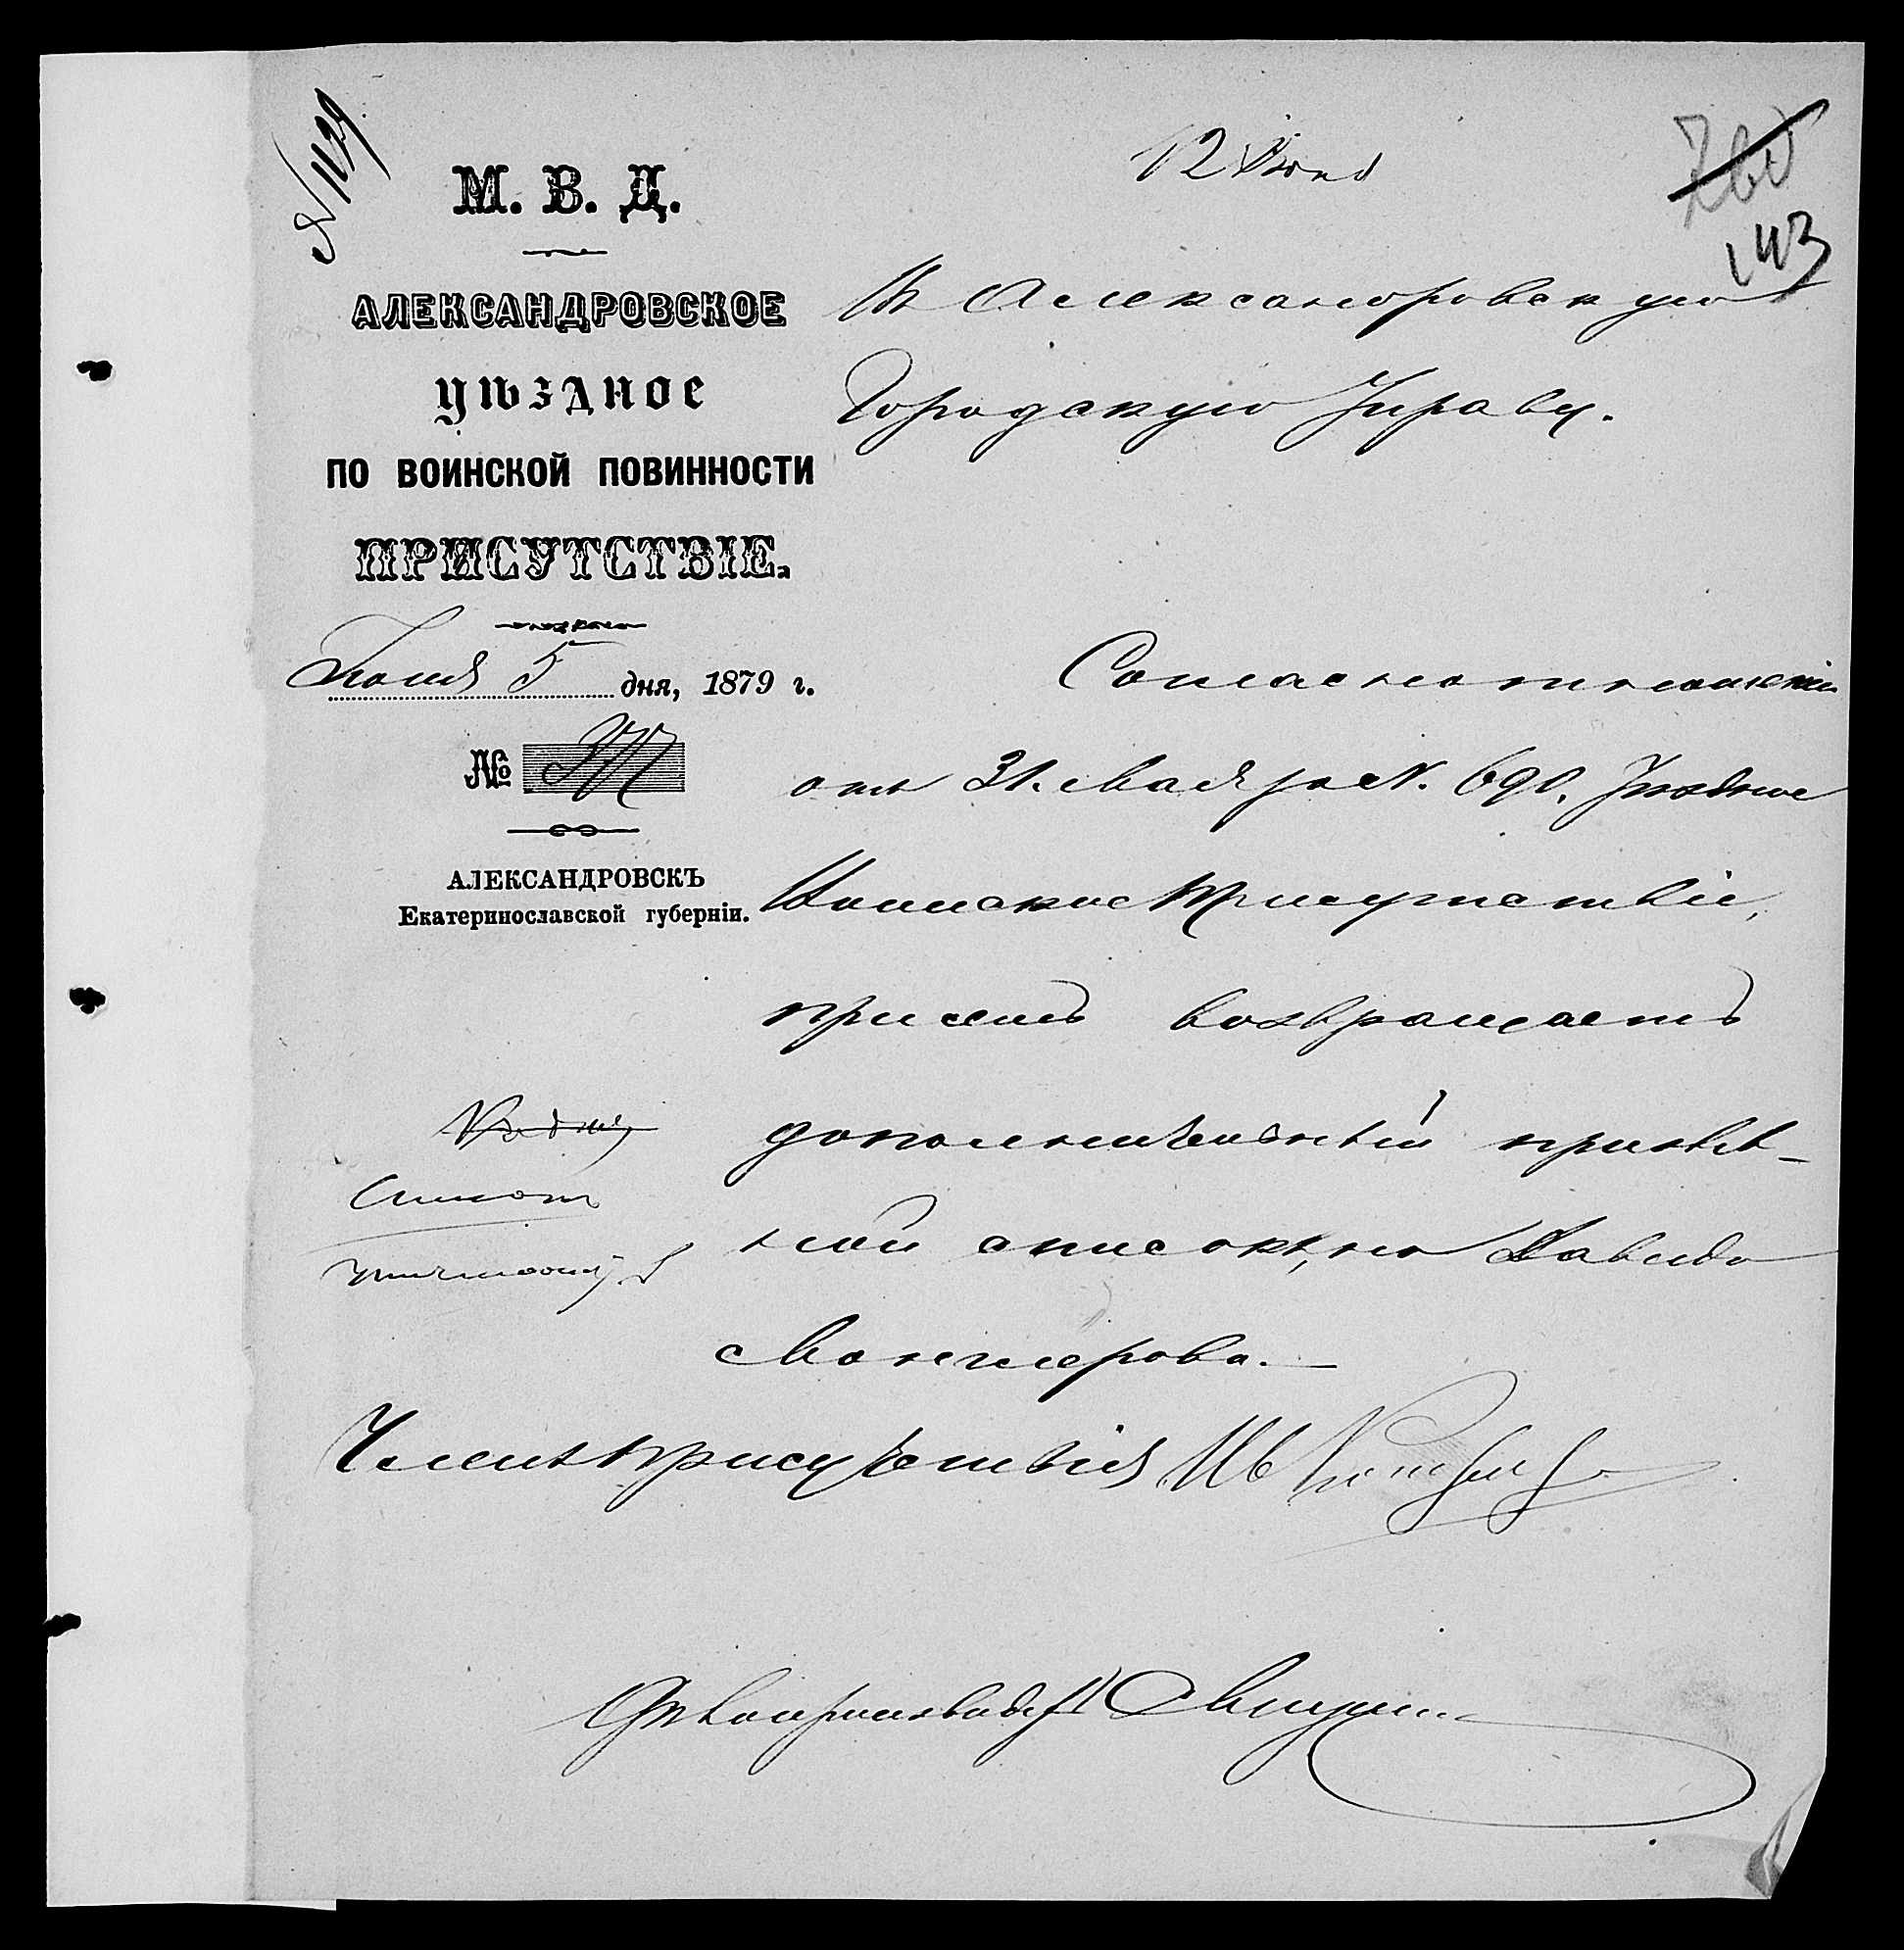 № 1129
12 Іюня
760
143
М. В. Д.
АЛЕКСАНДРОВСКОЕ
УѢЗДНОЕ
ПО ВОИНСКОЙ ПОВИННОСТИ
ПРИСУТСТВІЕ.
Іюня 5 дня, 1879 г.
№
АЛЕКСАНДРОВСКЪ
Екатеринославской губерніи.
Въ Александровскую
Городскую Управу.
Согласно отношенію
отъ 31. Мая за N. 690. Уѣздное
Воинское Присутствіе,
при семъ возвращаетъ
дополнительный призыв-
ной списокъ, на Давида
Членъ Присутствія
Дѣлопроизводит